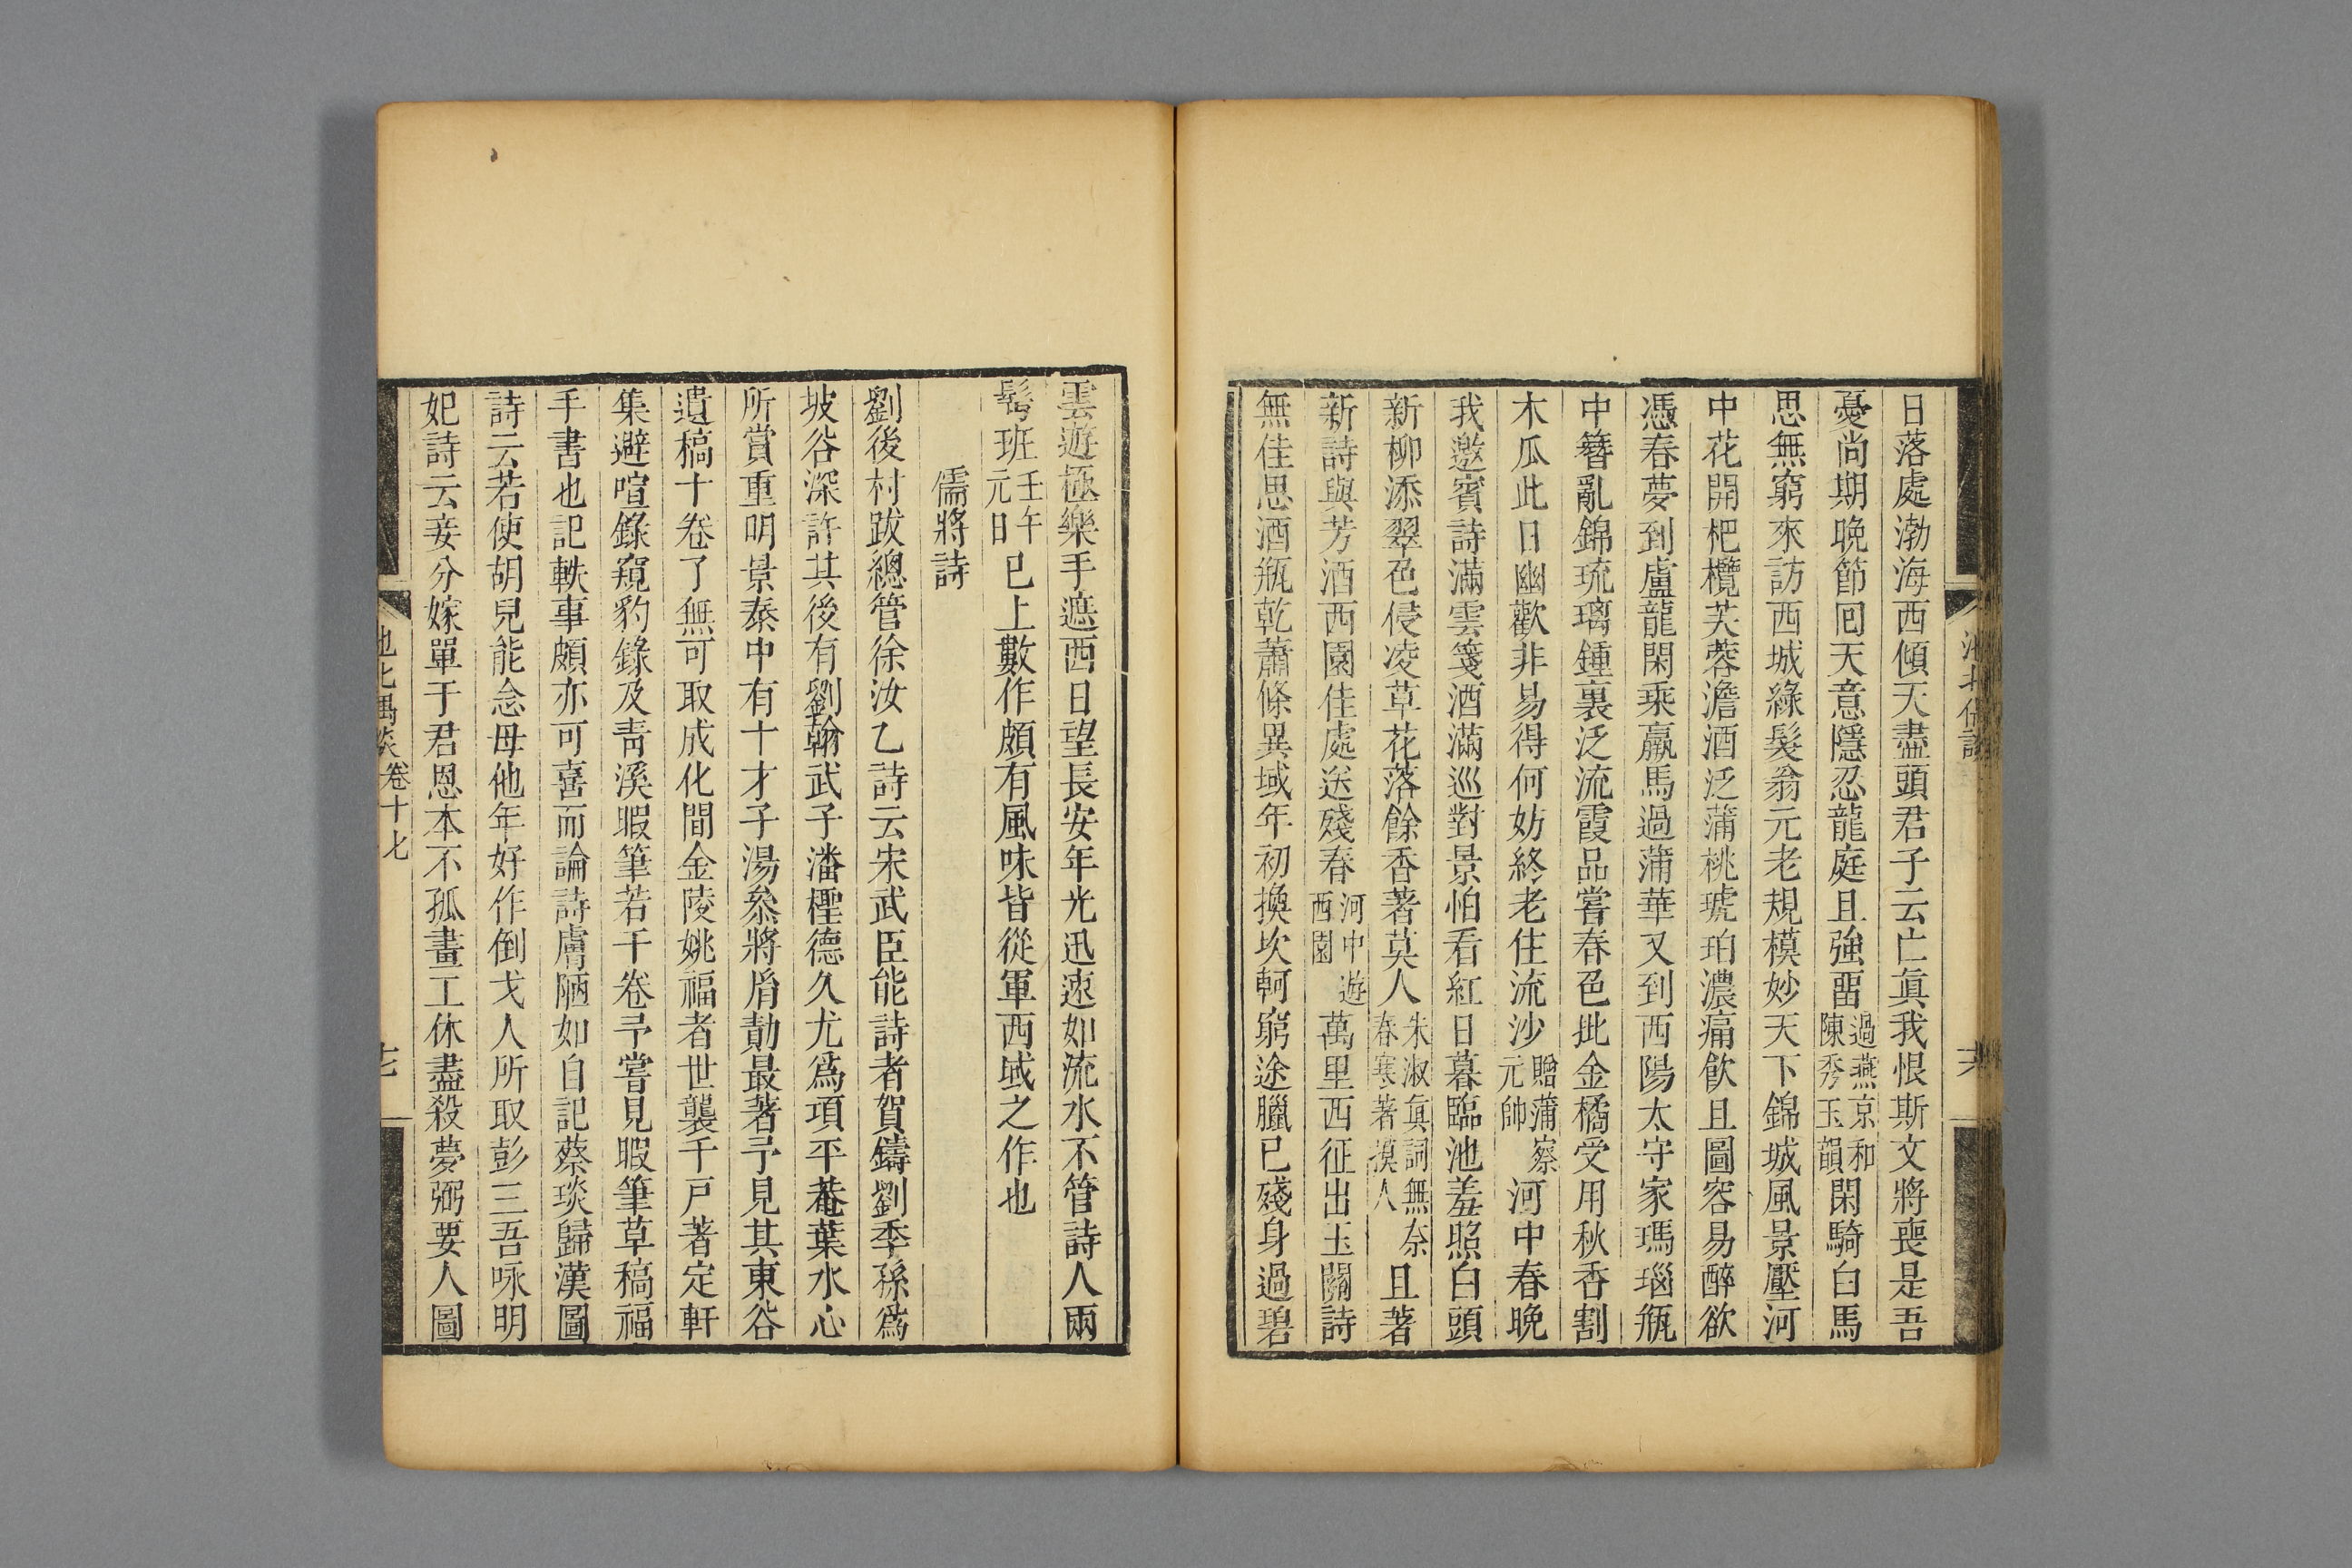 日落處渤海西傾天盡頭君子云亡眞我恨斯文將喪是吾
憂尚期晚節回天意隱忍龍庭且強畱過燕京和陳秀玉韻閑騎白馬
思無窮來訪西城綠髮翁元老規模妙天下錦城風景壓河
中花開杷欖芙蓉澹酒泛蒲桃琥珀濃痛飮且圖容易醉欲
憑春夢到盧龍閑乘羸馬過蒲華又到西陽太守家瑪瑙瓶
中簪亂錦琉璃鍾裏泛流霞品嘗春色批金橘受用秋香割
木瓜此日幽歡非易得何妨終老住流沙贈蒲察元帥河中春晚
我邀賓詩滿雲箋酒滿巡對景怕看紅日暮臨池羞照白頭
新柳添翠色侵凌草花落餘香著莫人朱淑眞詞無奈春寒著摸人且著
新詩與芳酒西園佳處送殘春河中遊西園萬里西征出玉關詩
無佳思酒瓶乾蕭條異域年初換坎軻窮途臘已殘身過碧
雲遊極樂手遮西日望長安年光迅速如流水不管詩人兩
鬢班壬午元日已上數作頗有風味皆從軍西域之作也
儒將詩
劉後村跋總管徐汝乙詩云宋武臣能詩者賀鑄劉季孫爲
坡谷深許其後有劉翰武子潘檉德久尤爲項平菴葉水心
所賞重明景泰中有十才子湯叅將胤勣最著予見其東谷
遺稿十卷了無可取成化間金陵姚福者世襲千戸著定軒
集避喧錄窺豹錄及靑溪暇筆若干卷予嘗見暇筆草稿福
手書也記軼事頗亦可喜而論詩膚陋如自記蔡琰歸漢圖
詩云若使胡兒能念母他年好作倒戈人所取彭三吾咏明
妃詩云妾分嫁單于君恩本不孤畫工休盡殺夢弼要人圖
卷十七